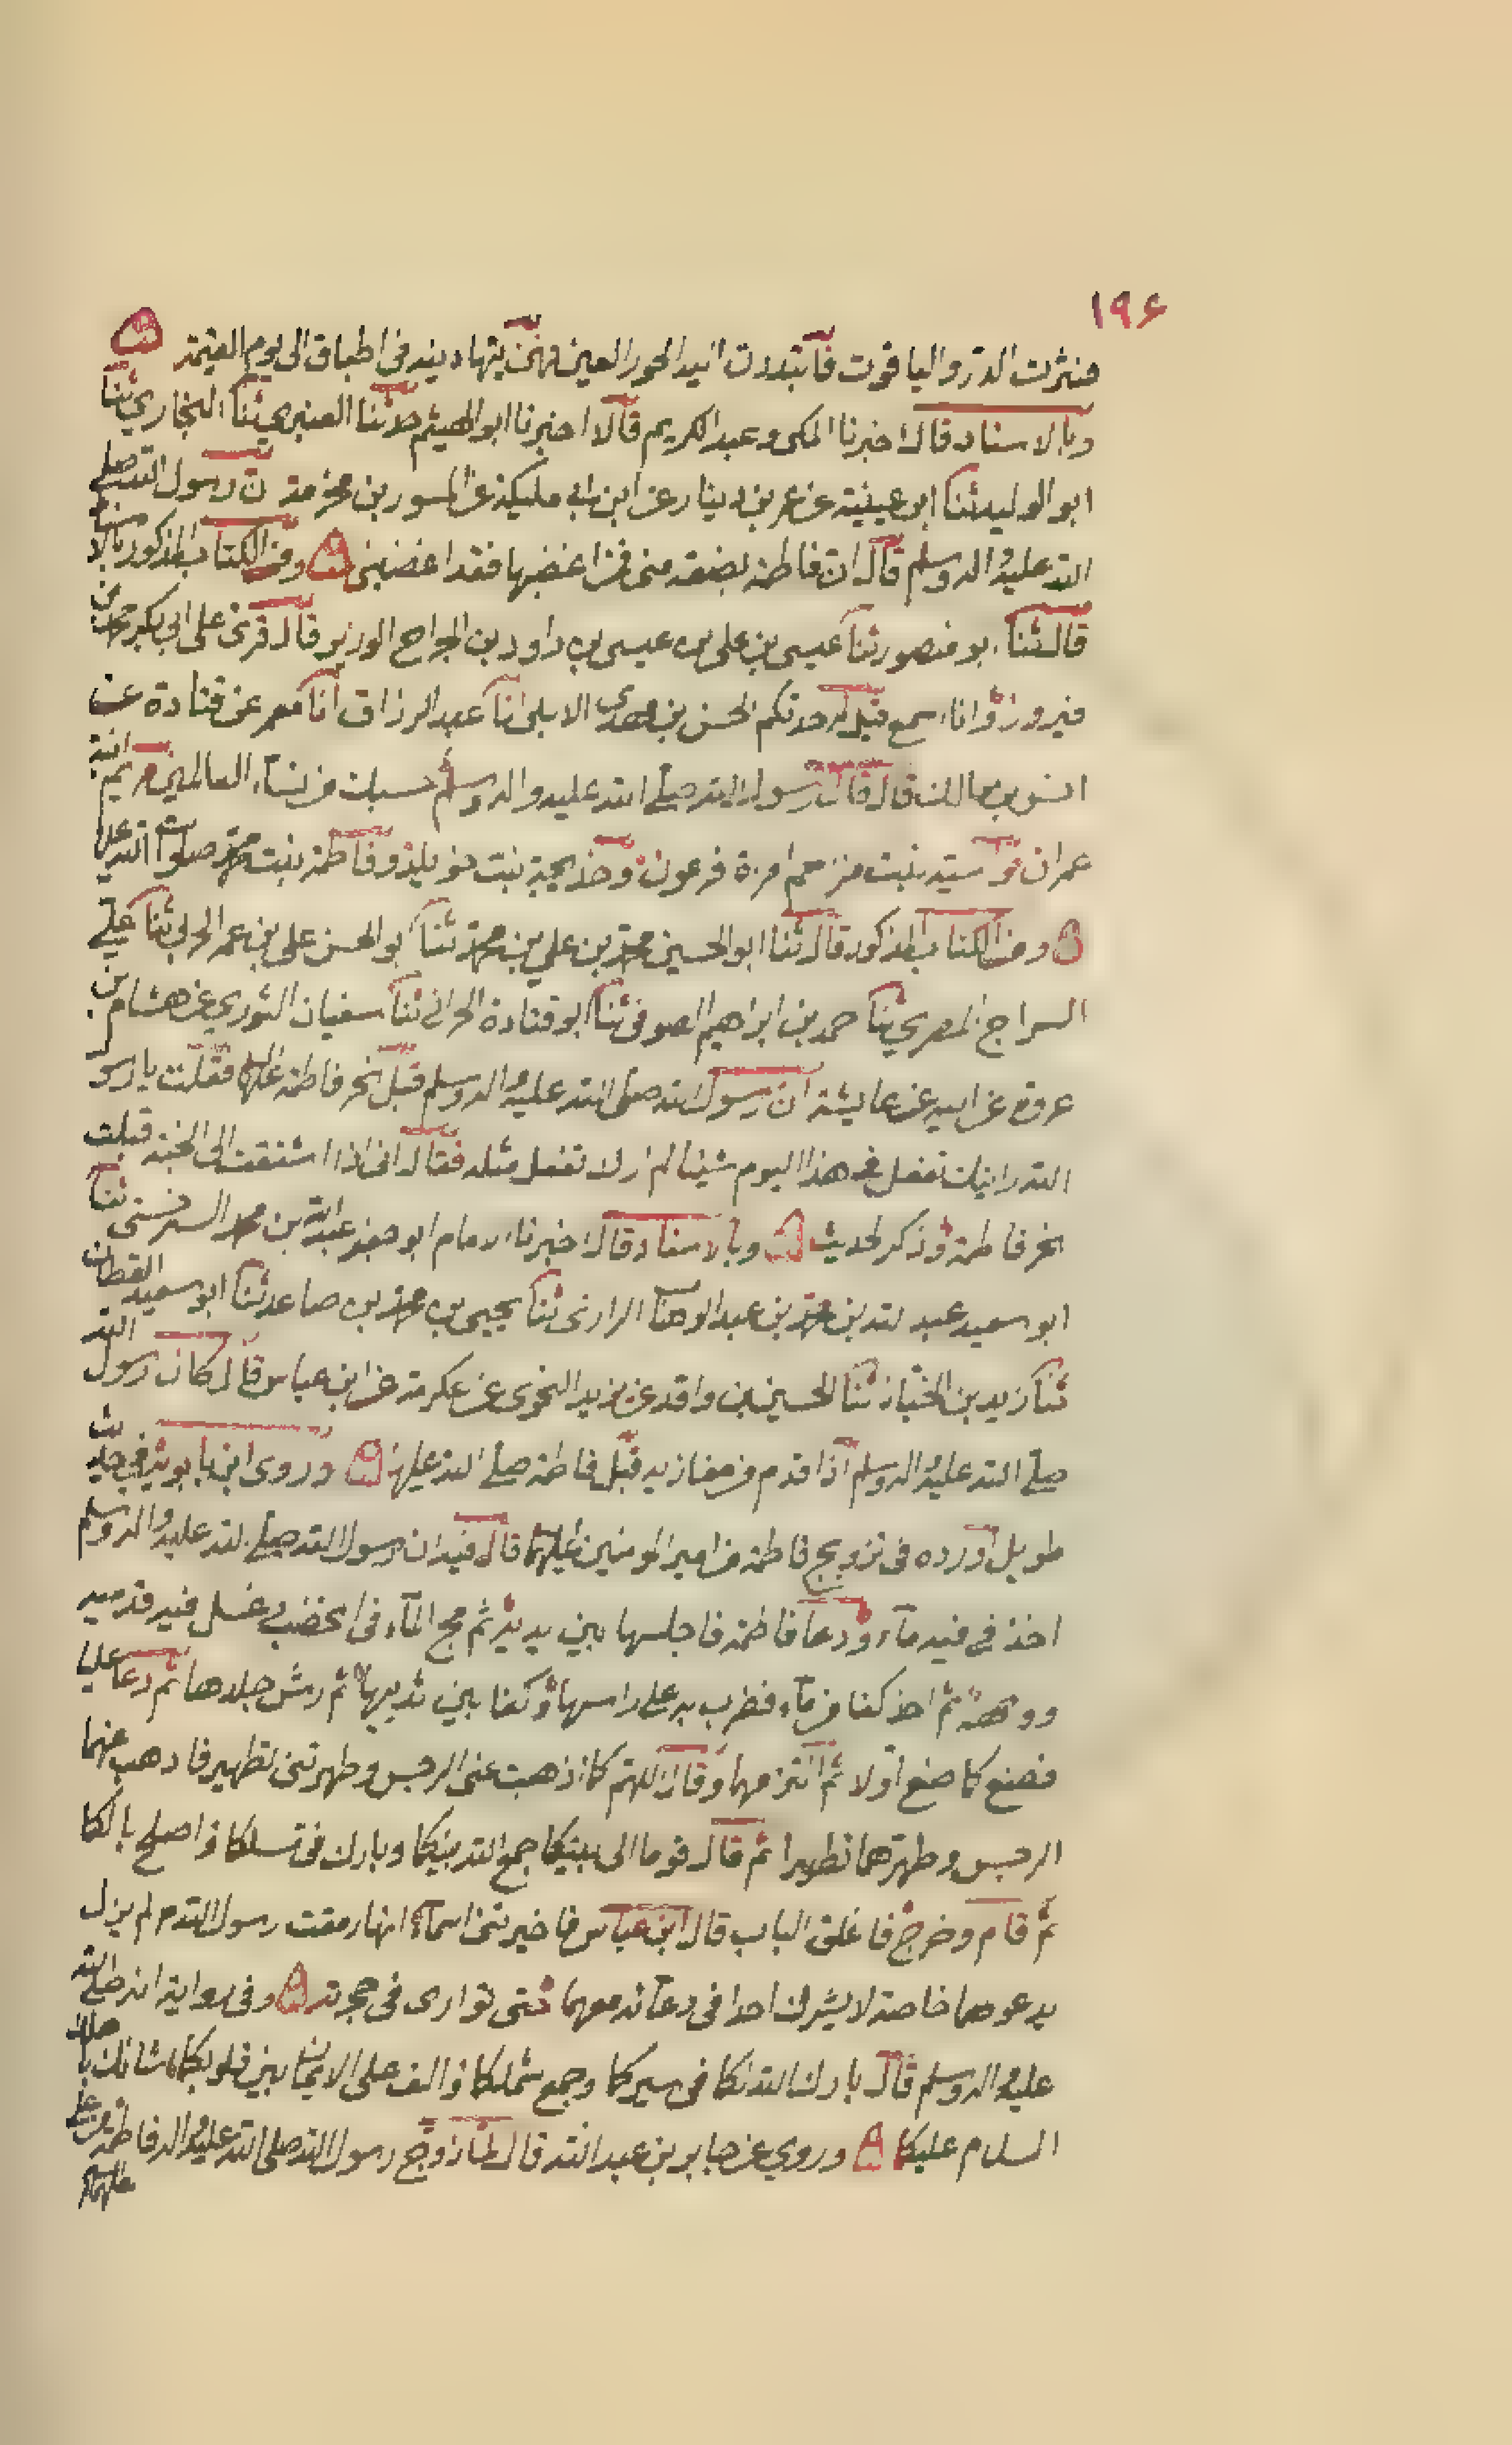 ١٩۶
فنثرت الدر والياقوت فابتدرت اليه الحور العين فهن يتهادينه في اطباق الى يوم القيمة
وبالاسناد قال اخبرنا المكى وعبد الكريم قالا اخبرنا ابو الهيثم حدثنا العنبري ثنا البخاري ثنا
ابو الوليد ثنا ابو عيينة عن عمر بن دينار عن ابن ابي مليكة عن المسور بن مخرمة ان رسول الله صلى
الله عليه واله وسلم قال ان فاطمة بضعة مني فمن اغضبها فقد اغضبني ومن الكتاب المذكور بالاسناد
قال ثنا ابو منصور ثنا عيسى بن على بن عيسى بن داود بن الجراح الوزير قال قرئ على ابي بكر محمد بن
فيروز وانا اسمع قيل له حدثكم الحسن بن مهدى الابلى انا عبد الرزاق انا معمر عن قتادة عن
انس بن مالك قال قال رسول الله صلى الله عليه واله وسلم حسبك من نساء العالمين مريم ابنة
عمران و اسية بنت مزحم امرءة فرعون وخديجة بنت خويلد وفاطمة بنت محمد صلوات الله على
ومن الكتاب المذكور قال ثنا ابو الحسين محمد بن علي بن محمد ثنا ابو الحسن على بن عمر الحربى ثنا على
السراج المصري ثنا احمد بن ابراهيم الصوفى ثنا ابو قتادة الحرانى ثنا سفيان الثوري عن هشام بن
عروة عن ابيه عن عايشة ان رسول الله صلى الله عليه واله وسلم قبل نحر فاطمة عليها فقلت يا رسول
الله رايتك تفعل في هذا اليوم شيئا لم ار لا تفعل مثله فقال انى اذا اشتقت الى الجنة قبلت
نحر فاطمة وذكر الحديث وبالاسناد قال اخبرنا الامام ابو جعفر عبد الله بن محمد السرخسى ثنا
ابو سعيد عبد الله بن محمد بن عبد الوهاب الرازى ثنا يحيى بن محمد بن صاعد ثنا ابو سعيد القطان
ثنا زيد بن الحباب ثنا الحسين بن واقد عن يزيد النحوى عن عكرمة عن ابن عباس قال كان رسول الله
صلى الله عليه واله وسلم اذا قدم من مغازيه قبل فاطمة صلى الله عليها وروى ابن بابويه في حديث
طويل اورده فى تزويج فاطمة من امير المومنين عليهما قال فيه ان رسول الله صلى الله عليه واله وسلم
اخذ في فيه ماء ودعا فاطمة فاجلسها بين يديه ثم مج الماء فى المخضب غسل فيه قدميه
ووجهه ثم اخذ كفا من ماء فضرب به على راسها وكفا بين ثدييها ثم رش جلدها ثم دعا عليا
فصنع كما صنع اولا ثم التزمهما وقال اللهم كما اذهبت عنى الرجس وطهرتنى تطهيرا فاذهب عنهما
الرجس وطهرهما تطهيرا ثم قال قوما الى بيتكما جمع الله بينكما وبارك فى نسلكما واصلح بالكما
ثم قام وخرج فاغلق الباب قال ابن عباس فاخبرتنى اسماء انها رمقت رسول الله م لم يزل
يدعو لهما خاصة لا يشرك احدا فى دعائه معهما حتى توارى فى حجرته وفى رواية انه صلى الله
عليه واله وسلم قال بارك الله لكما فى سيركما وجمع شملكما والف على الايمان بين قلوبكما شانك باهلك
السلام عليكما وروي عن جابر بن عبد الله قال لما زوج رسول الله صلى الله عليه واله فاطمة من على
عليهما